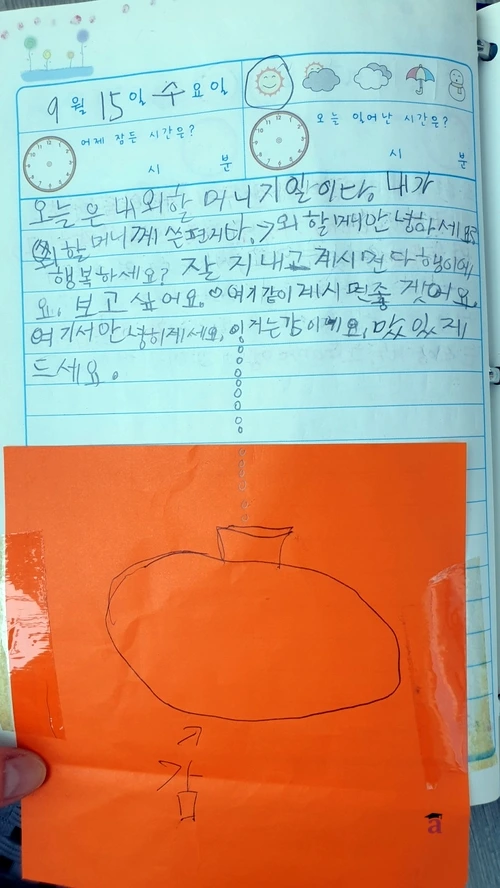 9월 15일 수요일
어제 잠든 시간은?
시 분
오늘 일어난 시간은?
시 분
오늘은 내 외할머니 기일이다. 내가
외할머니께 쓴편지다. → 외할머니 안녕하세요
행복하세요? 잘 지내고 계시면 다행이에
요. 보고 싶어요. ♡ 여기 같이 계시면 좋겟어요.
여기서 안녕히 계세요. 이거는 감이예요. 맜있게
드세요.
감
a